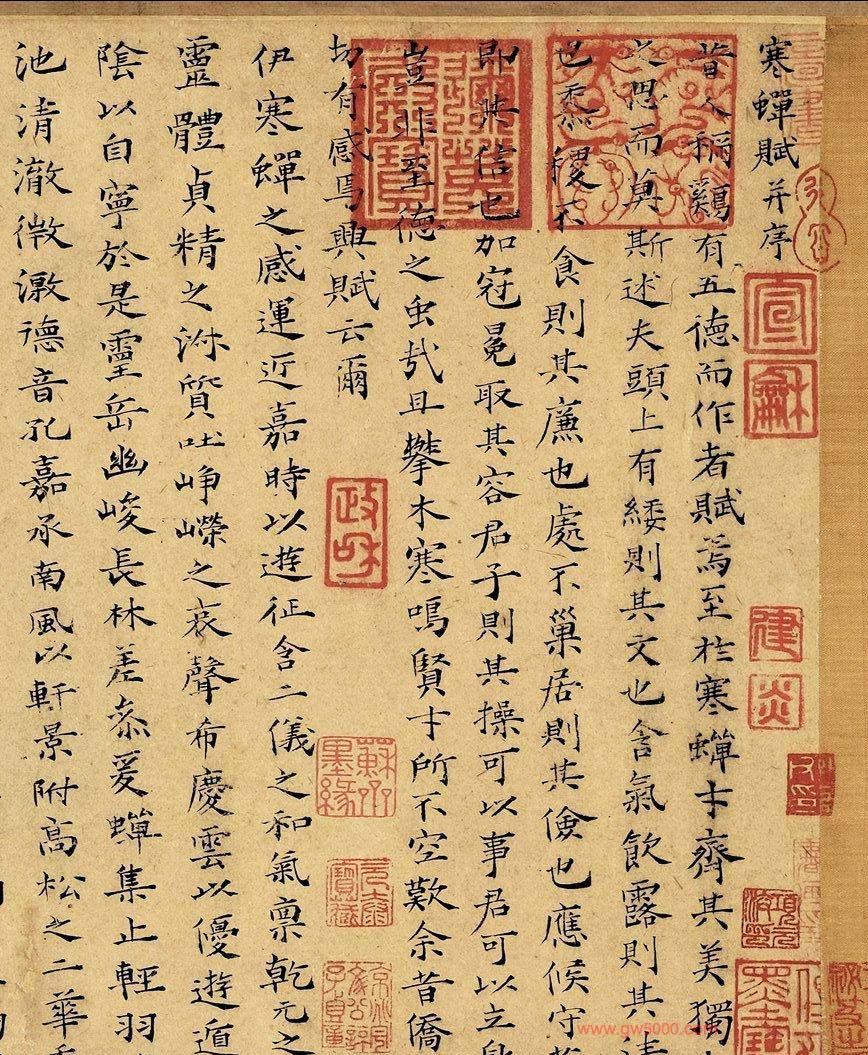 寒蟬賦并序
昔人稱鷄有五德而作者賦焉至於寒蟬才齊其美獨
之思而莫斯述夫頭上有緌則其文也含氣飲露則其清
也黍稷不食則其廉也處不巢居則其儉也應候守
即其信也加冠冕取其容君子則其操可以事君可以立
豈非至德之虫哉且攀木寒鳴賢才所不空歎余昔僑
切有感焉興賦云爾
伊寒蟬之感運近嘉時以遊征含二儀之和氣禀乾元之
靈體貞精之淋質吐崢嶸之哀聲希慶雲以優遊遁
陰以自寧於是靈岳幽峻長林差參爰蟬集止輕羽
池清澈微激德音孔嘉承南風以軒景附高松之二華
宣龢
建炎
政和
蘇齋墨緣
www.gw5000.com